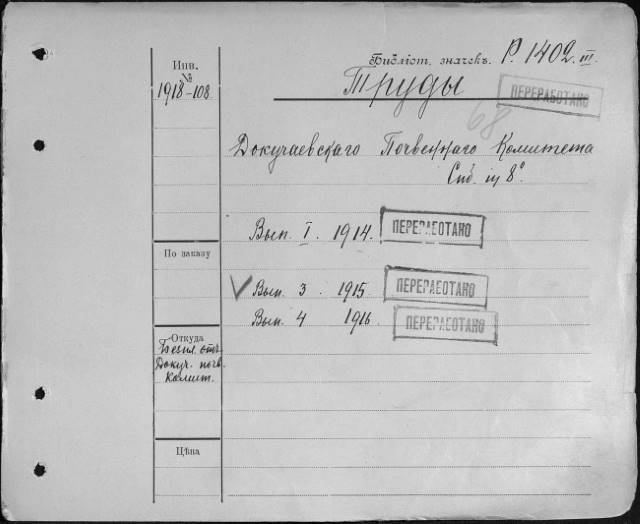 Инв.
№
1918-108
Библіот. значекъ. Р. 1402. III.
Труды
ПЕРЕРАБОТАНО
68
Докучаевскаго Почвеннаго Комитета
Спб. in 8°
Вып. I. 1914. ПЕРЕРАБОТАНО
По заказу
Вып. 3. 1915 ПЕРЕРАБОТАНО
Вып. 4 1916 ПЕРЕРАБОТАНО
Откуда
Безпл. отъ
Докуч. почв.
Комит.
Цѣна